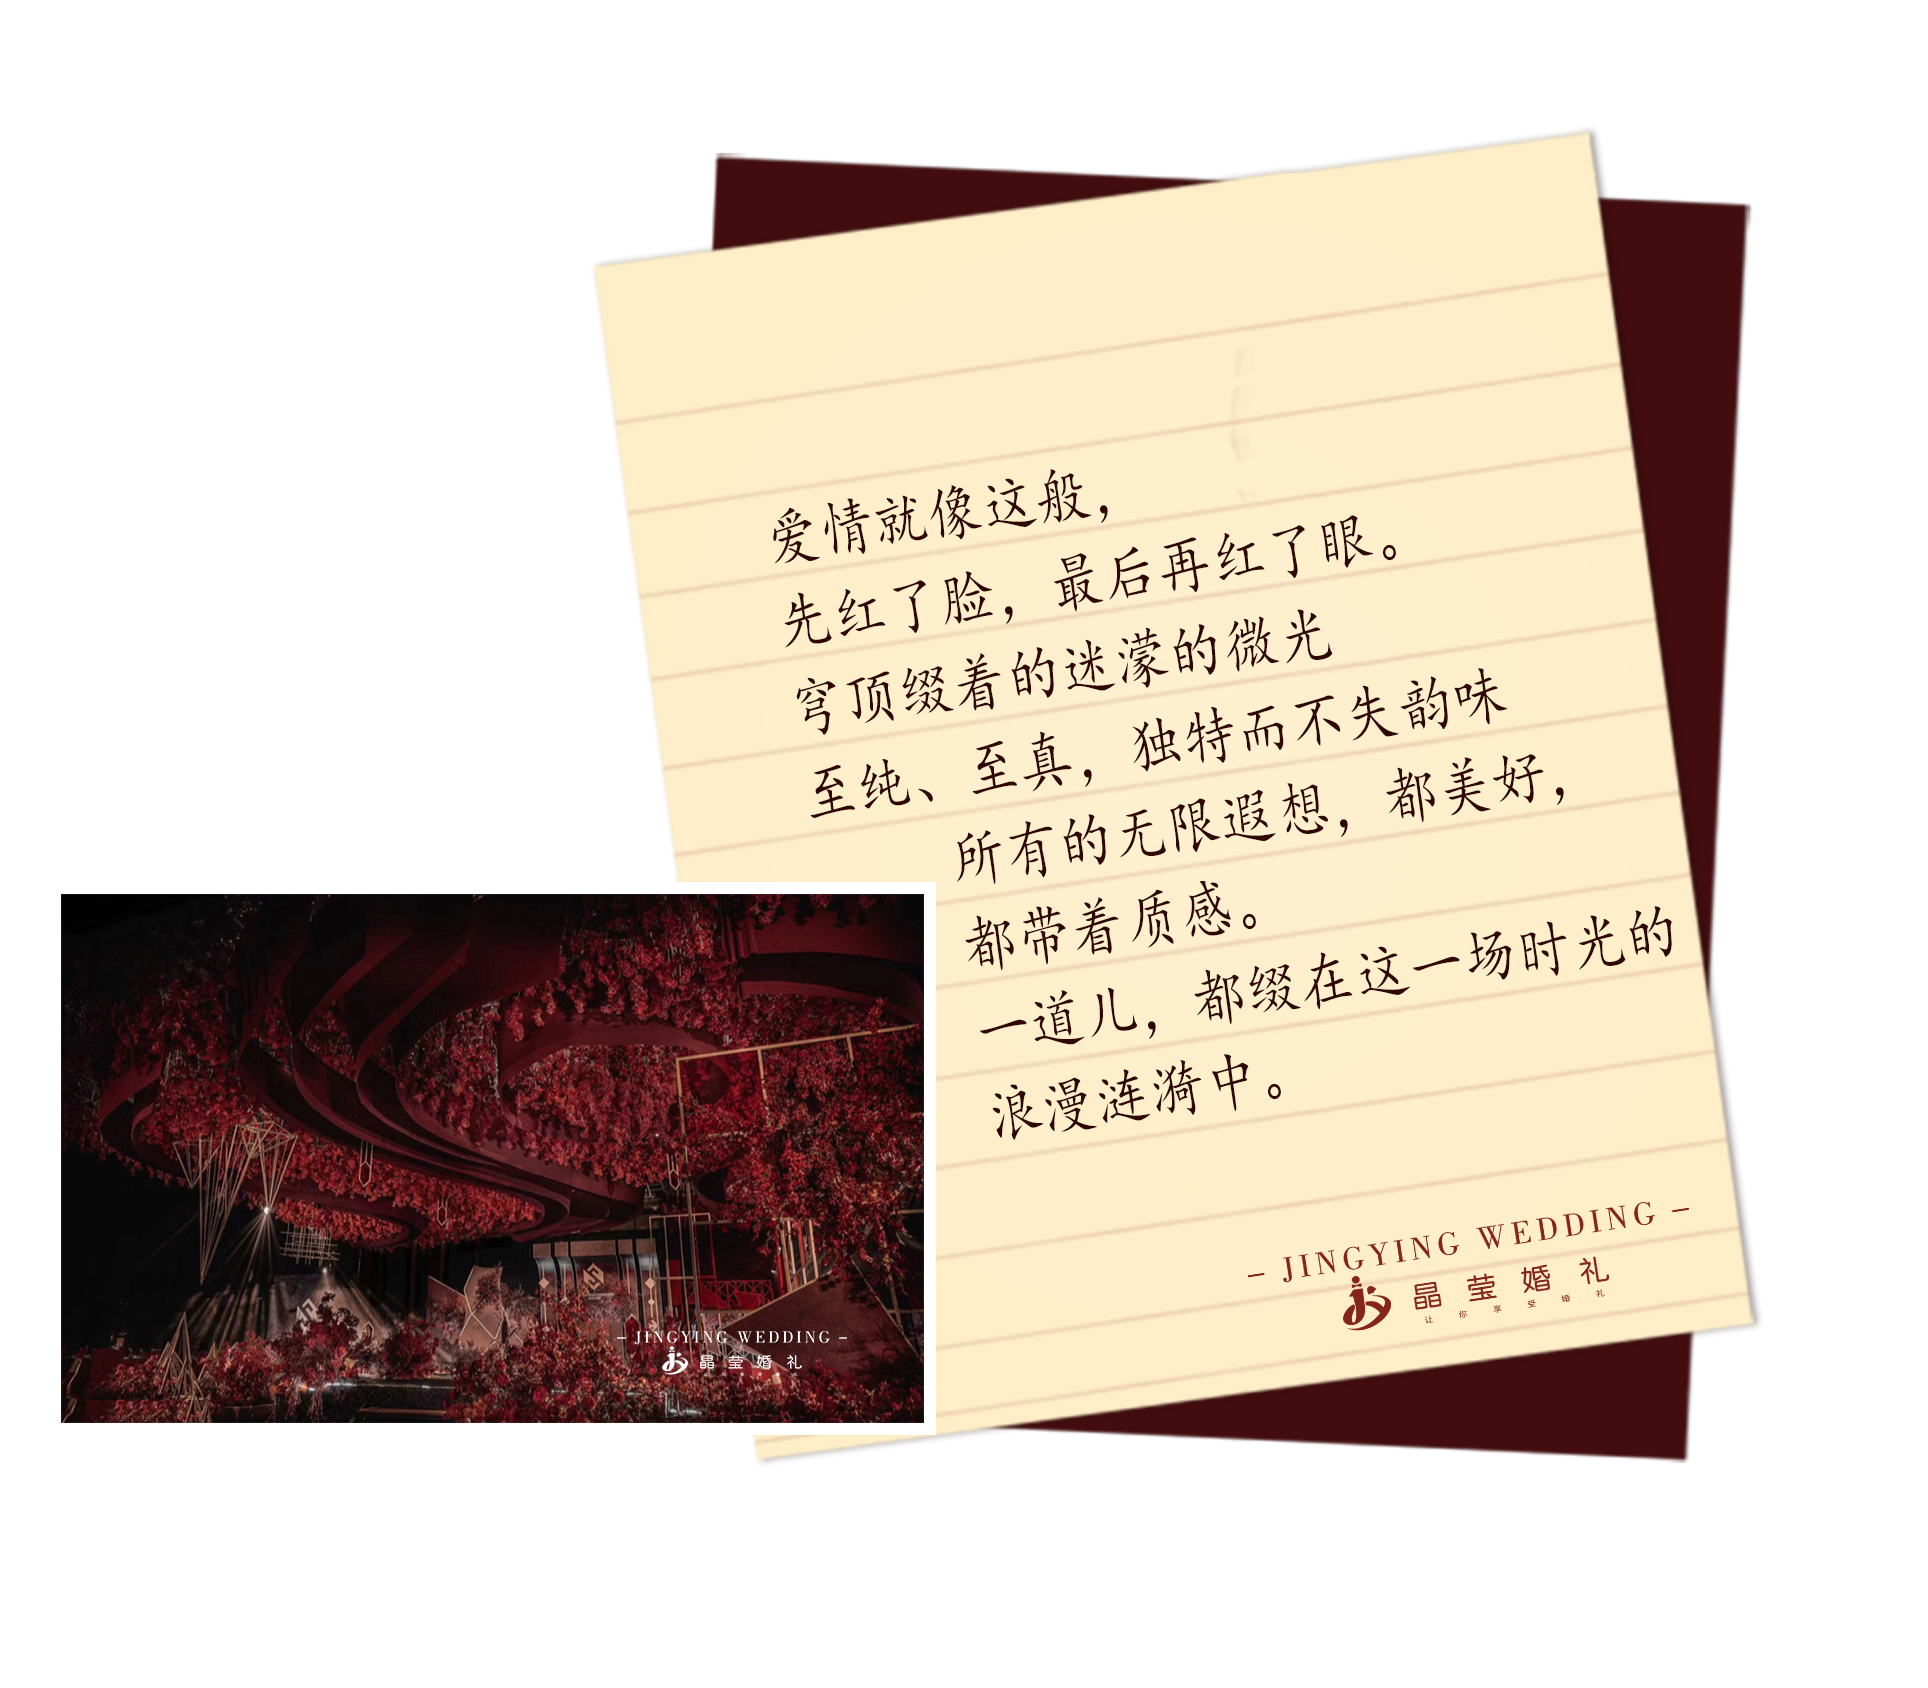 爱情就像这般，
先红了脸，最后再红了眼。
穹顶缀着的迷濛的微光
至纯、至真，独特而不失韵味
所有的无限遐想，都美好，
都带着质感。
一道儿，都缀在这一场时光的
浪漫涟漪中。
– JINGYING WEDDING –
晶莹婚礼
让你享受婚礼
– JINGYING WEDDING –
晶莹婚礼